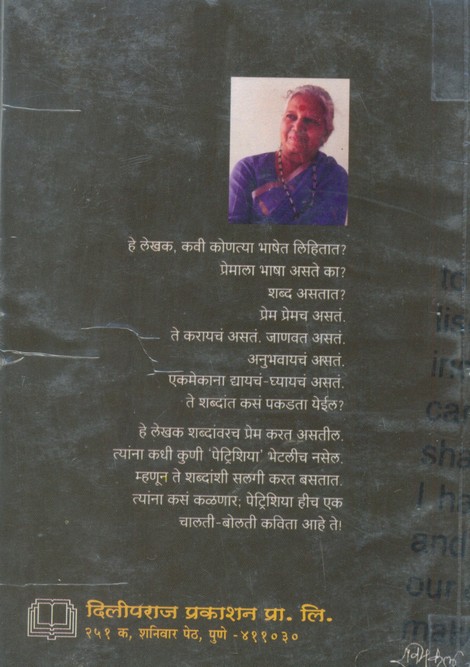 हे लेखक, कवी कोणत्या भाषेत लिहितात?
प्रेमाला भाषा असते का?
शब्द असतात?
प्रेम प्रेमच असतं.
ते करायचं असतं. जाणवत असतं.
अनुभवायचं असतं.
एकमेकाना द्यायचं-घ्यायचं असतं.
ते शब्दांत कसं पकडता येईल?
हे लेखक शब्दांवरच प्रेम करत असतील.
त्यांना कधी कुणी 'पेट्रिशिया' भेटलीच नसेल.
म्हणून ते शब्दांशी सलगी करत बसतात.
त्यांना कसं कळणार; पेट्रिशिया हीच एक
चालती-बोलती कविता आहे ते!
and
our
दिलीपराज प्रकाशन प्रा. लि.
२५१ क, शनिवार पेठ, पुणे -४११०३०